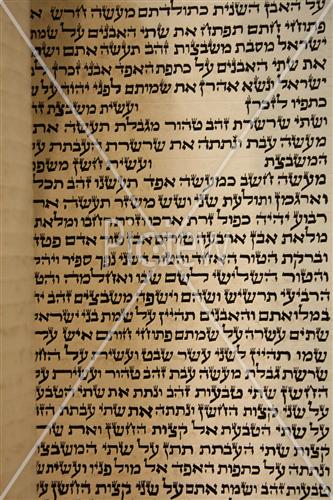 על האבן השנית כתולדתם מעשה חרש א
פתוחי חתם תפתח את שתי האבנים על שמת
ישראל מסבת משבצות זהב תעשה אתם ושמ
את שתי האבנים על כתפת האפד אבני זכרן ל
ישראל ונשא אהרן את שמותם לפני יהוה על ש
כתפיו לזכרן ועשית משבצת זה
ושתי שרשרת זהב טהור מגבלת תעשה את
מעשה עבת ונתתה את שרשרת העבתת על
המשבצת ועשית חשן משפ
מעשה חשב כמעשה אפד תעשנו זהב תכל
וארגמן ותולעת שני ושש משזר תעשה את
רבוע יהיה כפול זרת ארכו וזרת רחבו ומלאת
מלאת אבן ארבעה טורים אבן טור אדם פטד
וברקת הטור האחד והטור השני נפך ספיר ויהל
והטור השלישי לשם שבו ואחלמה והט
הרביעי תרשיש ושהם וישפה משבצים זהב יה
במלואתם והאבנים תהיין על שמת בני ישרא
שתים עשרה על שמתם פתוחי חותם איש על
שמו תהיין לשני עשר שבט ועשית על החש
שרשת גבלת מעשה עבת זהב טהור ועשית על
החשן שתי טבעות זהב ונתת את שתי הטבעו
על שני קצות החשן ונתתה את שתי עבתת הז
על שתי הטבעת אל קצות החשן ואת שתי
קצות שתי העבתת תתן על שתי המשבצות
ונתתה על כתפות האפד אל מול פניו ועשית ש
טבעות זהב ושמת אתם על שני קצות החשן על